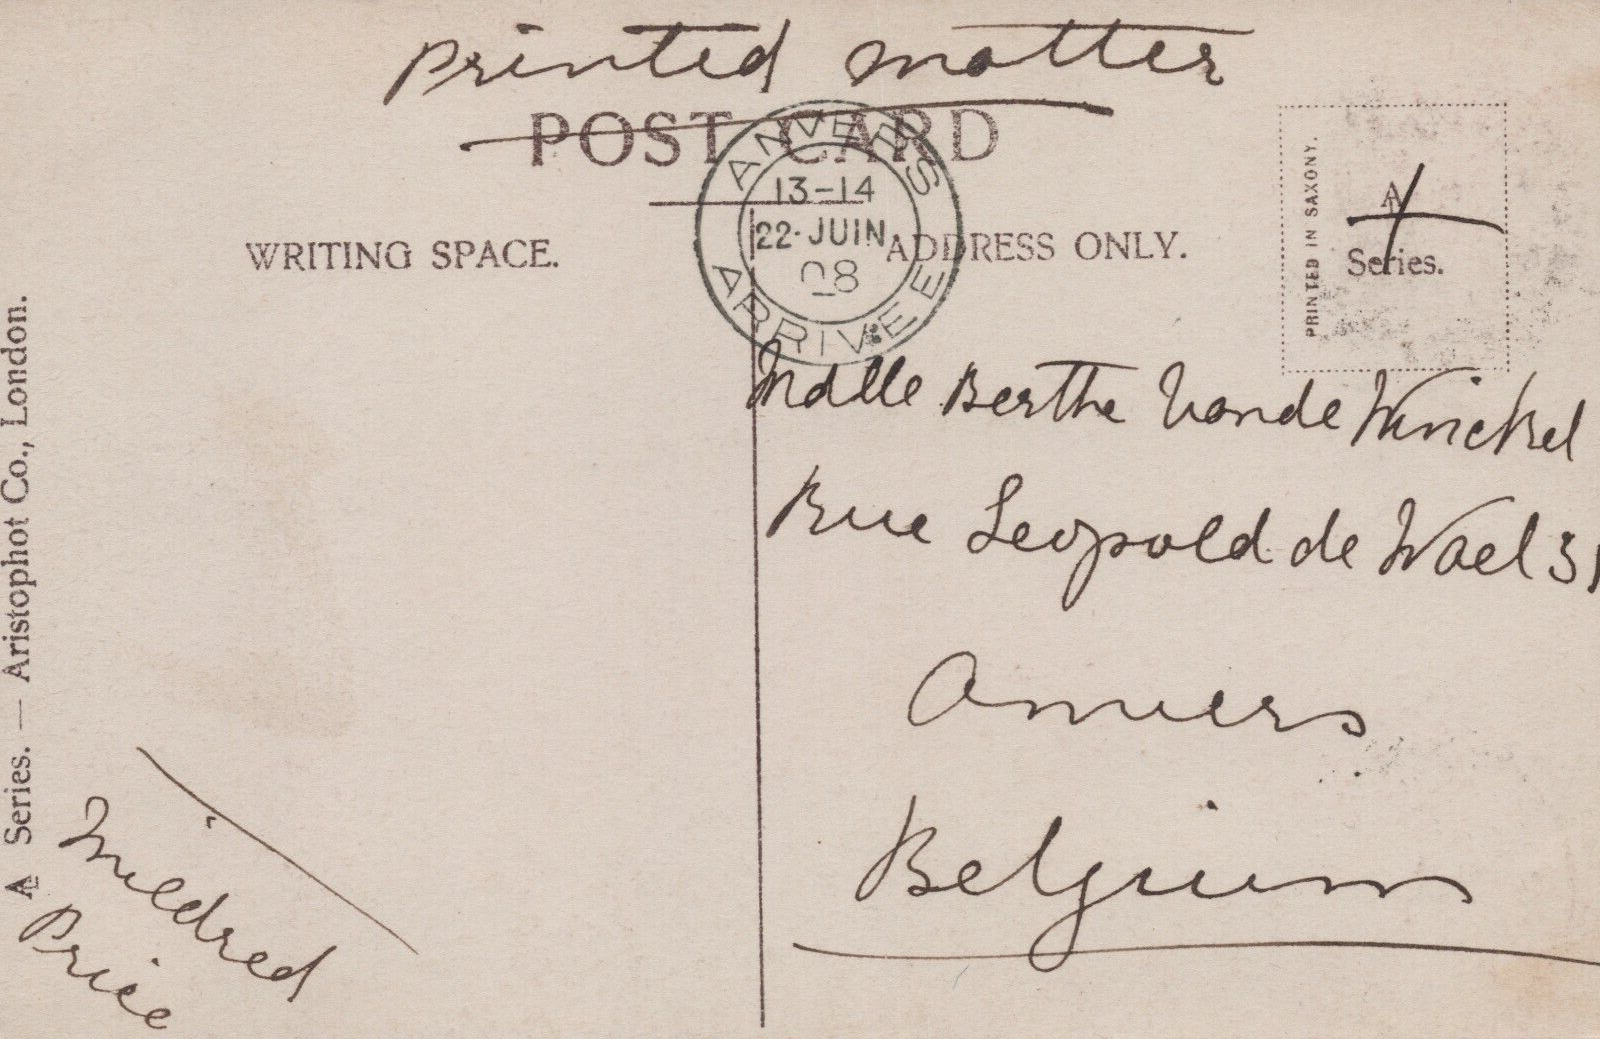 Printed matter
POST CARD
ANVERS
13-14
22·JUIN
08
ARRIVEE
WRITING SPACE.
ADDRESS ONLY.
PRINTED IN SAXONY.
A
Series.
Mdlle Berthe Vande Winckel
Rue Leopold de Wael 31
Anvers
Belgium
A Series. — Aristophot Co., London.
Mildred
Price